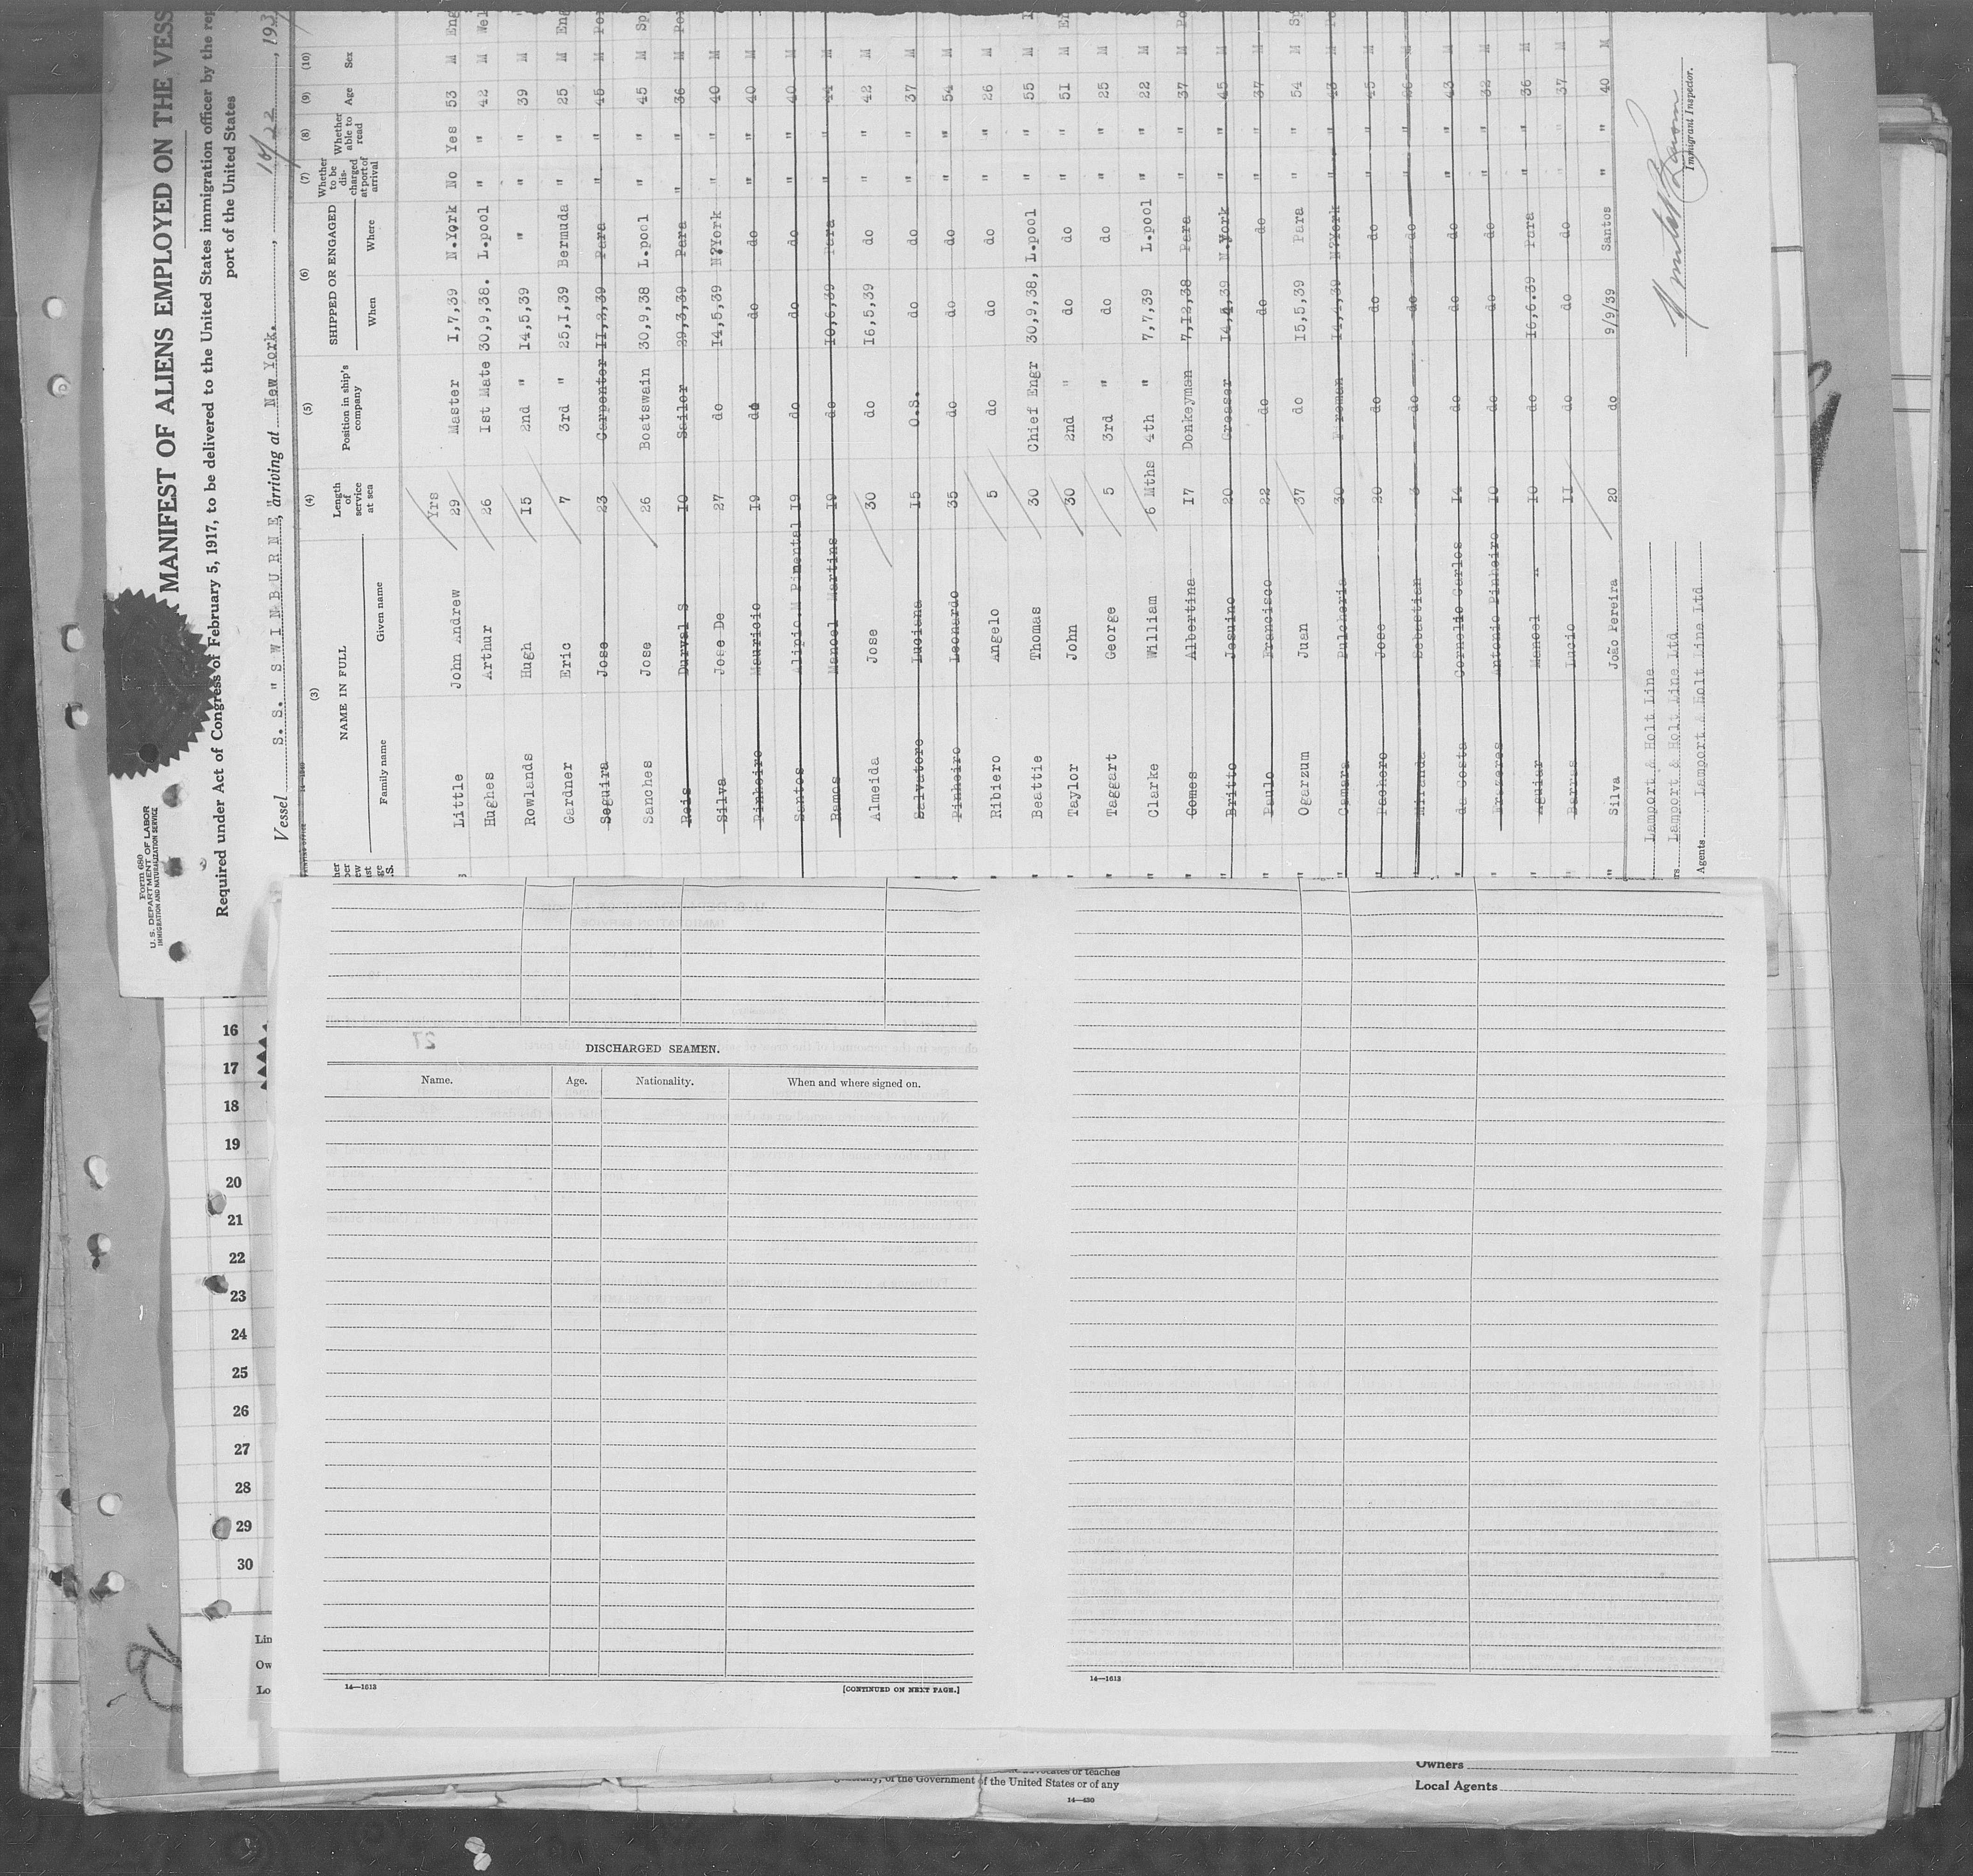 Form 680
U. S. DEPARTMENT OF LABOR
IMMIGRATION AND NATURALIZATION SERVICE
MANIFEST OF ALIENS EMPLOYED ON THE VESS
Required under Act of Congress of February 5, 1917, to be delivered to the United States immigration officer by the rep
port of the United States
Vessel S. S. "SWINBURNE", arriving at New York. 10/22, 193
(3) (4) (5) (6) (7) (8) (9) (10)
NAME IN FULL Length of service at sea Position in ship's company SHIPPED OR ENGAGED Whether to be discharged at port of arrival Whether able to read Age Sex
Family name Given name When Where
Yrs
Little John Andrew 29 Master 1,7,39 N.York No Yes 53 M Eng
Hughes Arthur 26 1st Mate 30,9,38. L.pool " " 42 M Wel
Rowlands Hugh 15 2nd " 14,5,39 " " " 39 M "
Gardner Eric 7 3rd " 25,1,39 Bermuda " " 25 M Eng
Seguira Jose 23 Carpenter 11,3,39 Para " " 45 M Po
Sanches Jose 26 Boatswain 30,9,38 L.pool " " 45 M Sp
Reis Durval S 10 Sailor 29,3,39 Para " " 36 M Po
Silva Jose De 27 do 14,5,39 N?York " " 40 M
Pinheiro Mauricio 19 do do do " " 40 M
Santos Alipio.M Pimental 19 do do do " " 40 M
Ramos Manoel Martins 19 do 10,6,39 Para " " 44 M
Almeida Jose 30 do 16,5,39 do " " 42 M
Salvatore Luciana 15 O.S. do do " " 37 M
Pinheiro Leonardo 35 do do do " " 54 M
Ribiero Angelo 5 do do do " " 26 M
Beattie Thomas 30 Chief Engr 30,9,38, L.pool " " 55 M
Taylor John 30 2nd " do do " " 51 M En
Taggart George 5 3rd " do do " " 25 M
Clarke William 6 Mths 4th " 7,7,39 L.pool " " 22 M
Gomes Albertina 17 Donkeyman 7,12,38 Para " " 37 M Po
Britto Jesuino 20 Greaser 14,4,39 N.York " " 45 M
Paulo Francisco 22 do do do " " 37 M
Ogarzum Juan 37 do 15,5,39 Para " " 54 M Sp
Camara Pulcheria 30 Fireman 14,4,39 N?York " " 43 M Po
Pachero Jose 20 do do do " " 45 M
Miranda Sebastian 3 do do do " " 26 M
da Costa Cornelio Carlos 14 do do do " " 43 M
Prazeres Antonio Pinheiro 10 do do do " " 32 M
Aguiar Manoel 10 do 16,6.39 Para " " 36 M
Barros Lucio 11 do do do " " 37 M
Silva João Pereira 20 do 9/9/39 Santos " " 40 M
Lamport & Holt Line
rs Lamport & Holt Line Ltd
Agents Lamport & Holt Line Ltd
Immigrant Inspector.
16
17
18
19
20
21
22
23
24
25
26
27
28
29
30
Lin
Ow
Lo
27
DISCHARGED SEAMEN.
Name. Age. Nationality. When and where signed on.
14—1613
[CONTINUED ON NEXT PAGE.]
14—1613
of the Government of the United States or of any
14—430
Owners
Local Agents